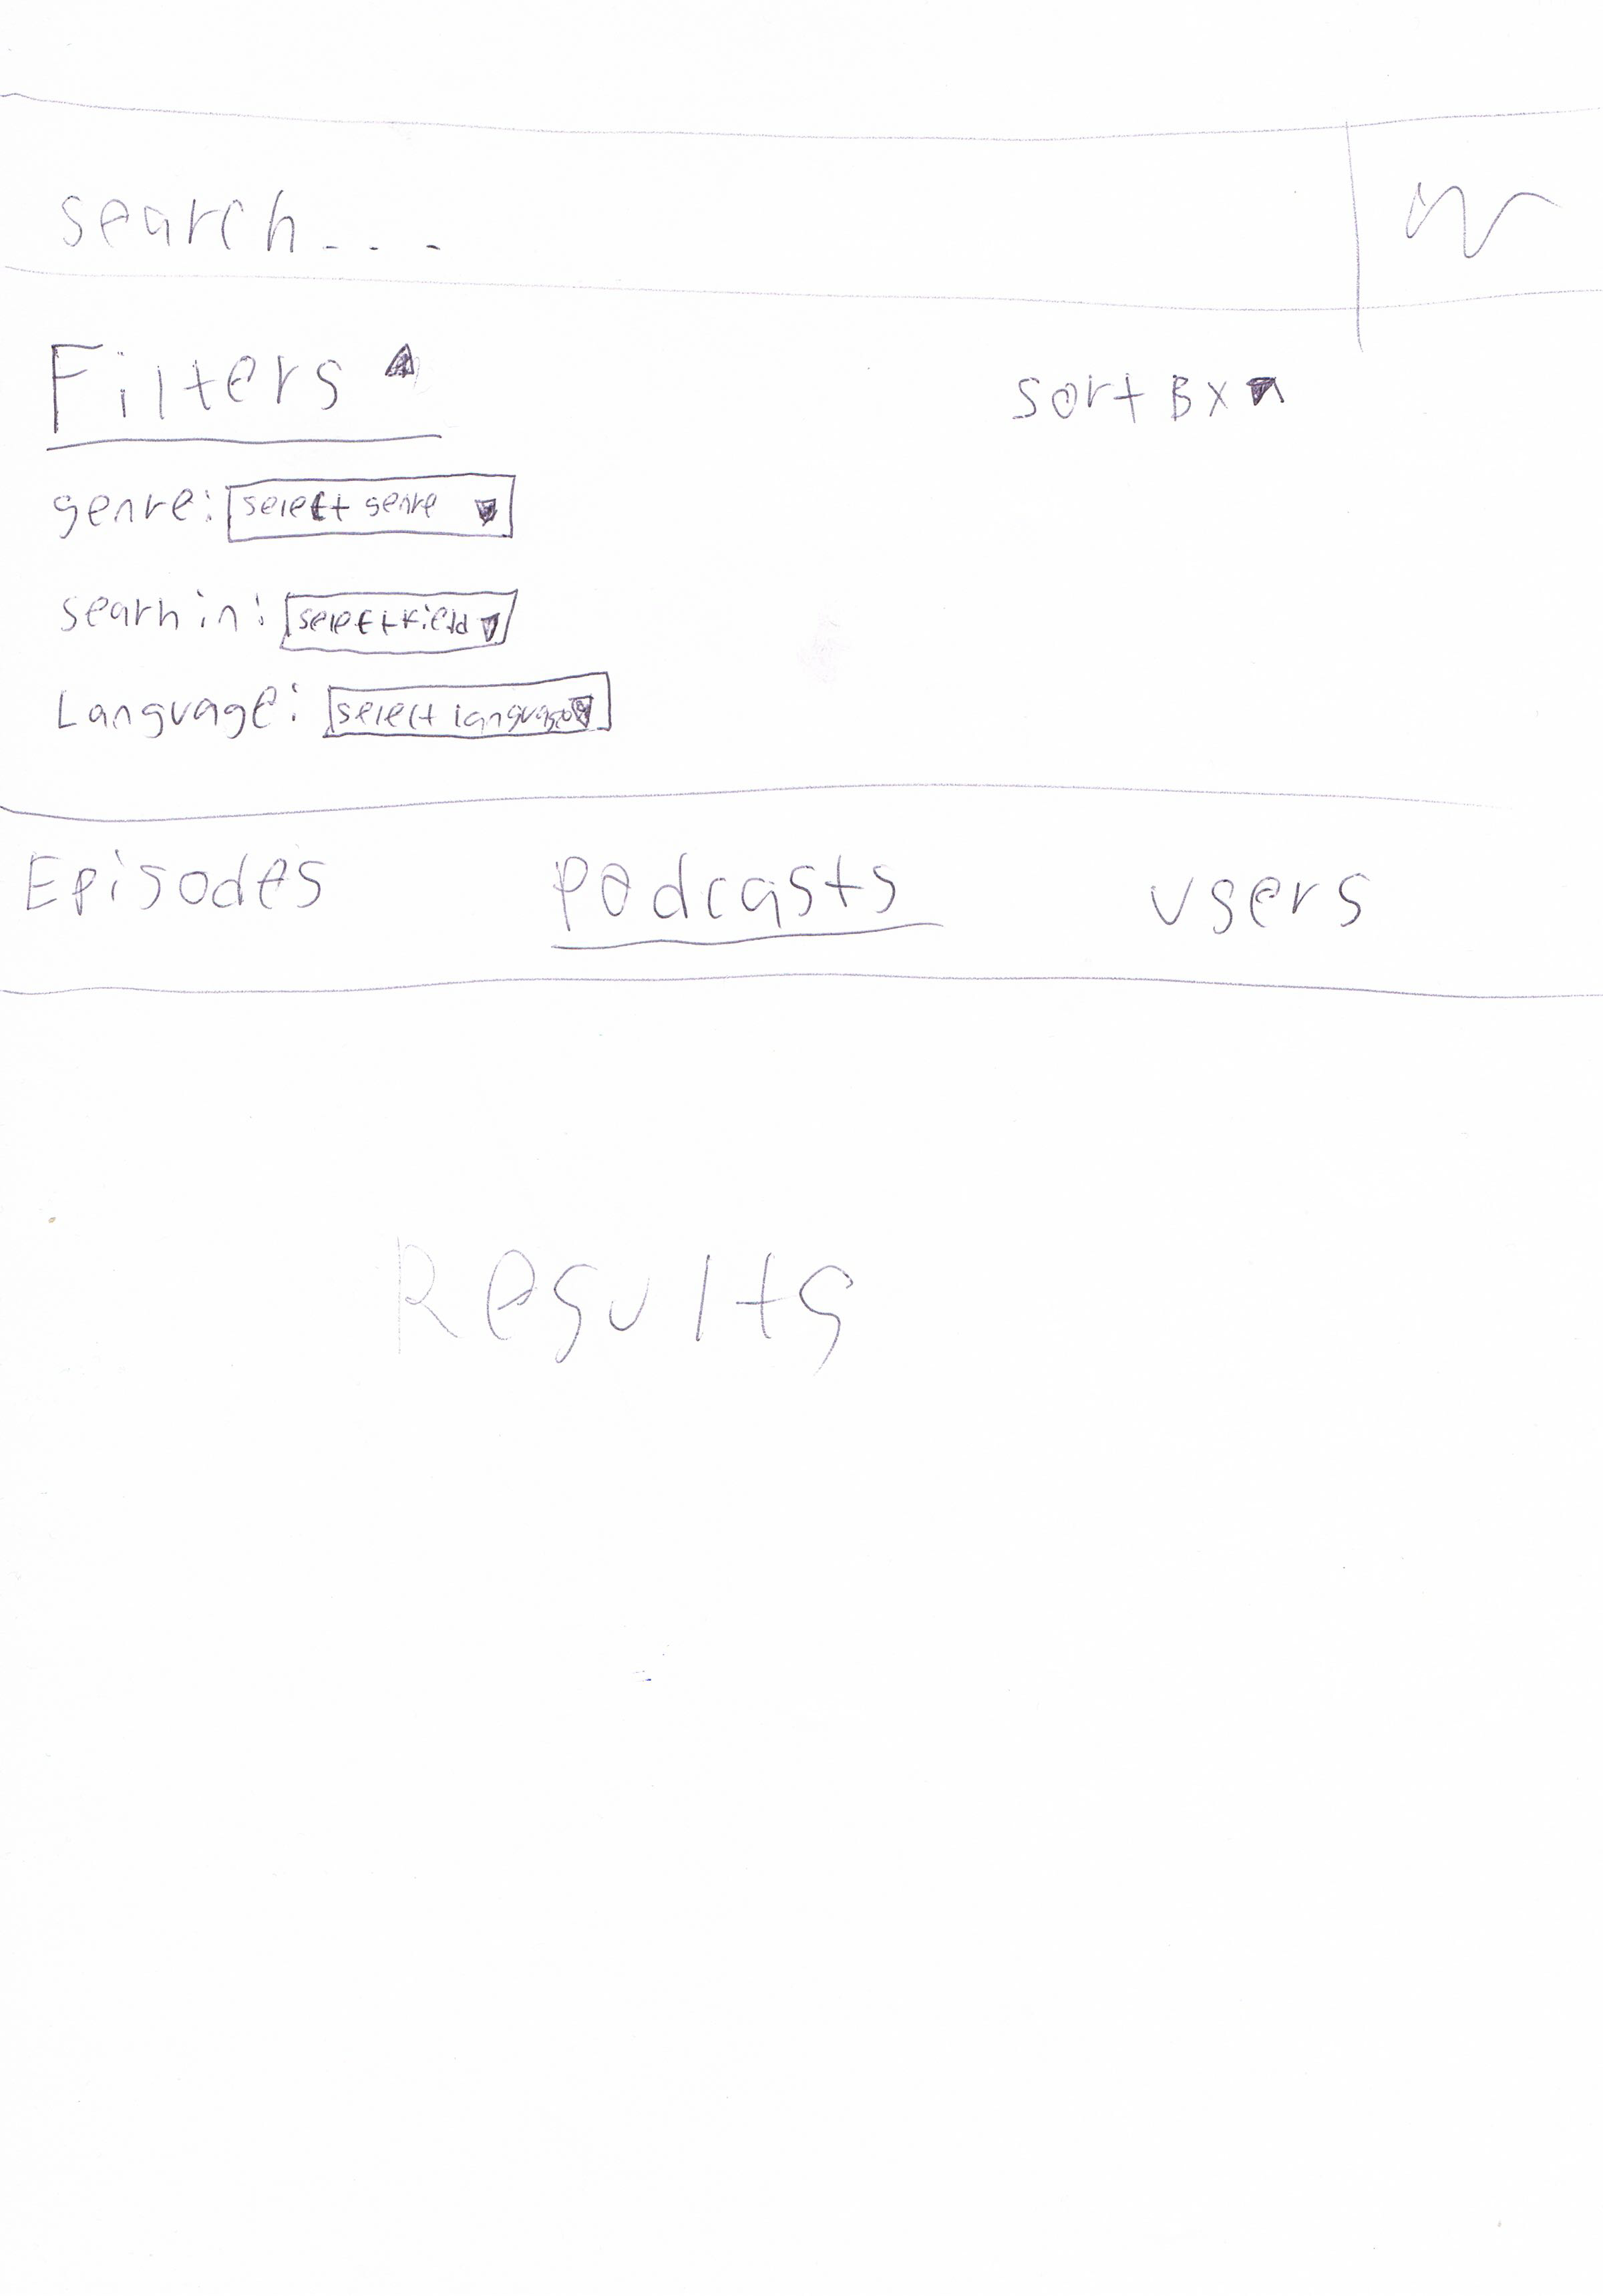 search...
Filters
Sort By
genre: select genre
searh in: select field
Language: select language
Episodes Podcasts users
Results